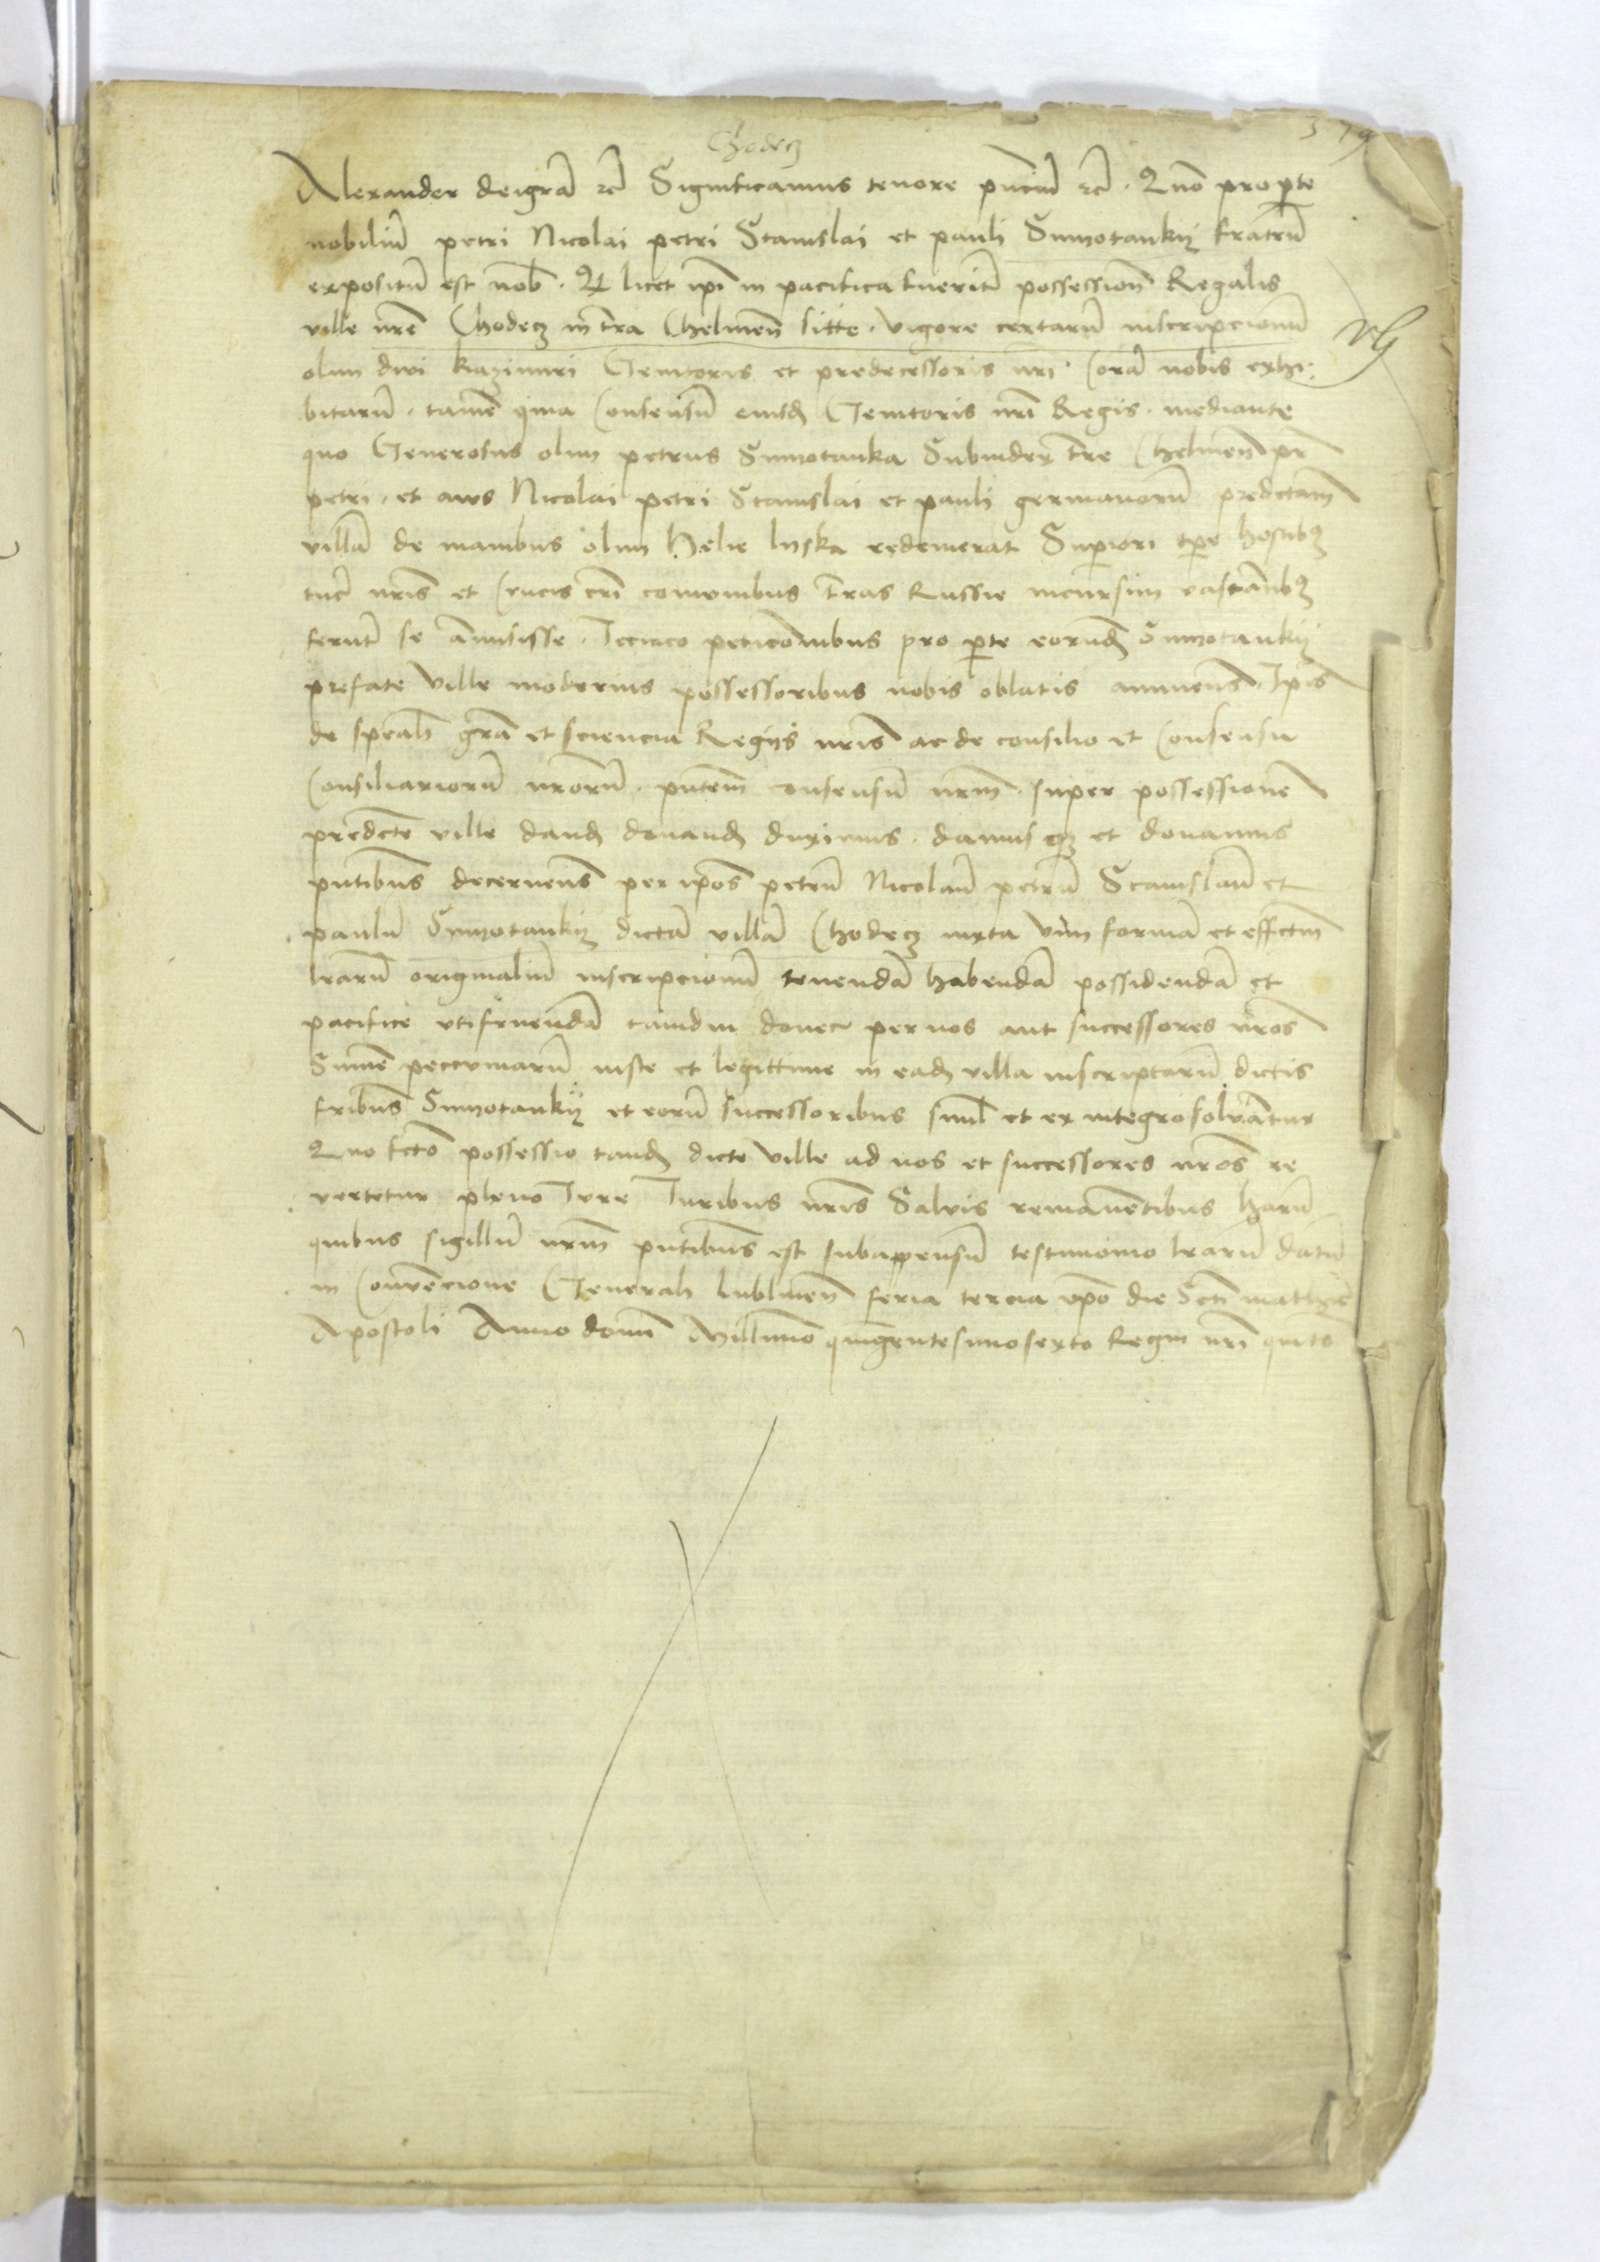 379
Chodecz
Alexander dei grā ꝛc̄ Significamus tenore pn̄ciū ꝛc̄. Quō pro ꝑte
nobiliū petri Nicolai petri Stanislai et pauli Smiotankij fratrū
expositū est nob̄. Qꝫ licet ip̄i in pacifica fuerit̄ possession̄ Regalis
ville nr̄e Chodecz in tr̄a Chelmen̄ sitte. vigore certarū inscripcionū
olim dn̄i kazimiri Genitoris et predecessoris nr̄i. Corā nobis exhi-
bitarū. tamē quia Consensū eiusdꝫ Genitoris nr̄i Regis. mediante
quo Generosus olim petrus Smiotanka Subiudex tr̄re Chelmen̄ pr̄
petri. et avus Nicolai petri Stanislai et pauli germanorū predictam
villā de manibus olim Helie lyska redemerat Suꝑiori tꝑe hostibꝫ
tūc nr̄is et Crucis cr̄i comunibus tr̄ras Russie incursim vastātibꝫ
ferut̄ se āmisisse. Iccirco peticōnibus pro ꝑte eorundꝫ Smiotankij
prefate ville modernis possessoribus nobis oblatis annuen̄. Ip̄is
de sp̄eali grā et sciencia Regijs nr̄is ac de consilio et Consensu
Consiliariorū nr̄orū. pn̄tem̄ consensū nr̄m̄. super possessionē
predcte ville dandꝫ donandꝫ duximus. damusqꝫ et donamus
pn̄tibus decernen̄ per ip̄os petrū Nicolaū petrū Stanislaū et
paulū Smiotankij dictā villā Chodecz iuxta vim formā et effctm̄
lr̄arū originaliū inscripcionū tenendā habendā possidendā et
pacifice vtifruendā tamdiu donec per nos aut successores nr̄os
Sum̄e peccuniarū iuste et legittime in eadꝫ villa inscriptarū dictis
fr̄ibus Smiotankij et eorū successoribus simul̄ et ex integro solvātur
Quo fctō possessio tandꝫ dicte ville ad nos et successores nr̄os re
vertetur pleno Iure Iuribus nr̄is Salvis remanētibus harū
quibus sigillū nr̄m̄ pn̄tibus est subappensū testimonio lr̄arū datū
in Convēcione Generali lublinen̄ feria tercia ip̄o die Scti mathie
Apostoli Anno domī Millimō quingentesimosexto Regni nr̄i quīto